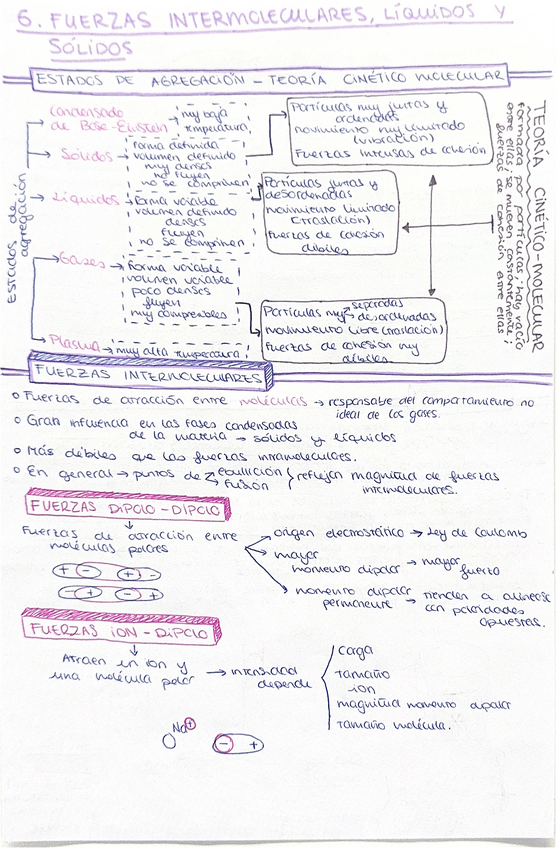 6. FUERZAS INTERMOLECULARES, LÍQUIDOS Y
SÓLIDOS
ESTADOS DE AGREGACIÓN - TEORÍA CINÉTICO MOLECULAR
Estados de
agregación
Condensado
de Bose-Einstein → muy baja
temperatura
Sólidos →
forma definida
volumen definido
muy densos
no fluyen
no se comprimen
Partículas muy juntas y
ordenadas
movimiento muy limitado
(vibración)
Fuerzas intensas de cohesión
Líquidos →
forma variable
volumen definido
densos
fluyen
no se comprimen
Partículas juntas y
desordenadas
movimiento limitado
(traslación)
Fuerzas de cohesión
débiles
Gases →
forma variable
volumen variable
poco densos
fluyen
muy compresibles
Partículas muy separadas
desordenadas
movimiento libre (traslación)
Fuerzas de cohesión muy
débiles
Plasma → muy alta temperatura
TEORÍA CINÉTICO-MOLECULAR
formada por partículas; hay vacío
entre ellas; se mueven constantemente;
fuerzas de cohesión entre ellas
FUERZAS INTERMOLECULARES
Fuerzas de atracción entre moléculas → responsable del comportamiento no
ideal de los gases.
Gran influencia en las fases condensadas
de la materia → sólidos y líquidos
Más débiles que las fuerzas intramoleculares.
En general → puntos de ebullición
fusión
reflejan magnitud de fuerzas
intermoleculares.
FUERZAS DIPOLO-DIPOLO
Fuerzas de atracción entre
moléculas polares
origen electrostático → Ley de Coulomb
mayor
momento dipolar → mayor
fuerza
momento dipolar
permanente → tienden a alinearse
con polaridades
opuestas.
+ - + -
- + - +
FUERZAS ION-DIPOLO
Atraen un ion y
una molécula polar → intensidad
depende
carga
tamaño
ion
magnitud momento dipolar
tamaño molécula.
Na+
- +